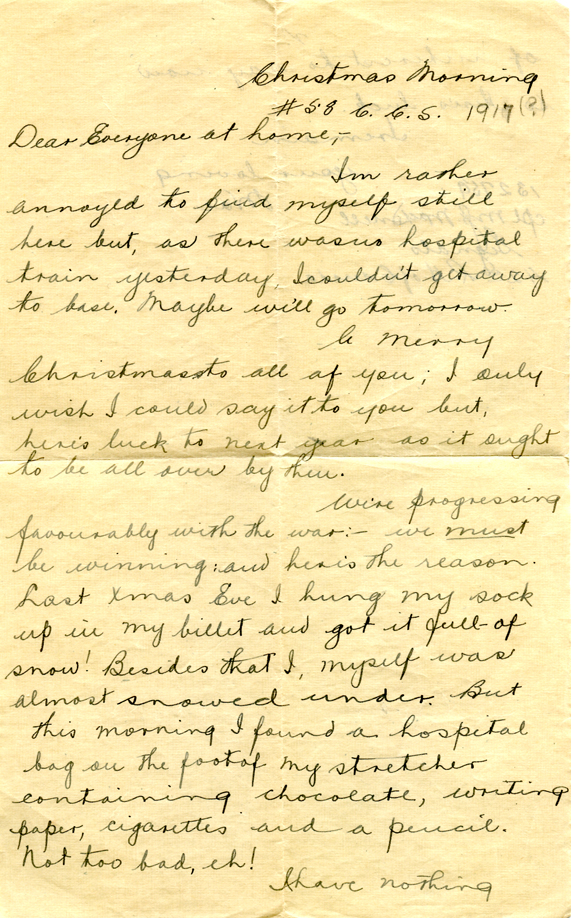 Christmas Morning
#58 C. C. S. 1917(?)
Dear Everyone at home,-
Im rather
annoyed to find myself still
here but, as there was no hospital
train yesterday, I couldn't get away
to base. Maybe we'll go tomorrow.
A Merry
Christmas to all of you; I only
wish I could say it to you but,
here's luck to next year as it ought
to be all over by then.
We're progressing
favourably with the war:- we must
be winning: and here is the reason.
Last Xmas Eve I hung my sock
up in my billet and got it full of
snow! Besides that I, myself was
almost snowed under. But
this morning I found a hospital
bag on the foot of my stretcher
containing chocolate, writing
paper, cigarettes and a pencil.
Not too bad, eh!
I have nothing